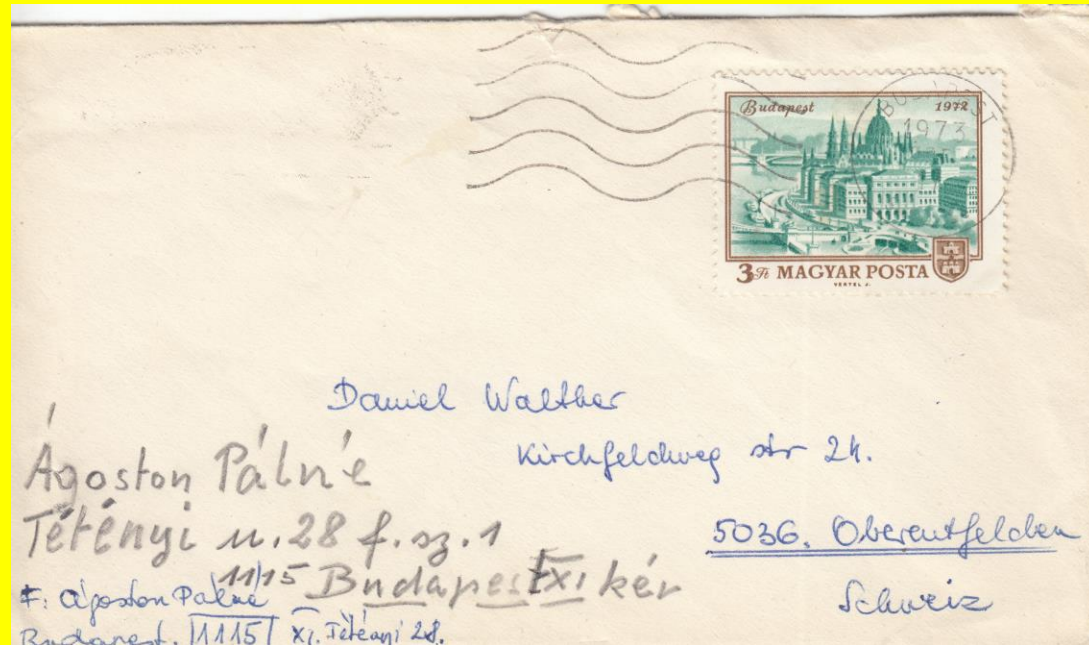 Budapest 1972
BUDAPEST
1973
3 Ft MAGYAR POSTA
VERTEL J.
Daniel Walther
Kirchfeldweg str 24.
5036. Oberentfelden
Schweiz
Ágoston Pálné
Tétényi u. 28 f. sz. 1
1115 Budapest XI kér
F: Ágoston Pálné
Budapest. 1115 XI. Tétényi 28.